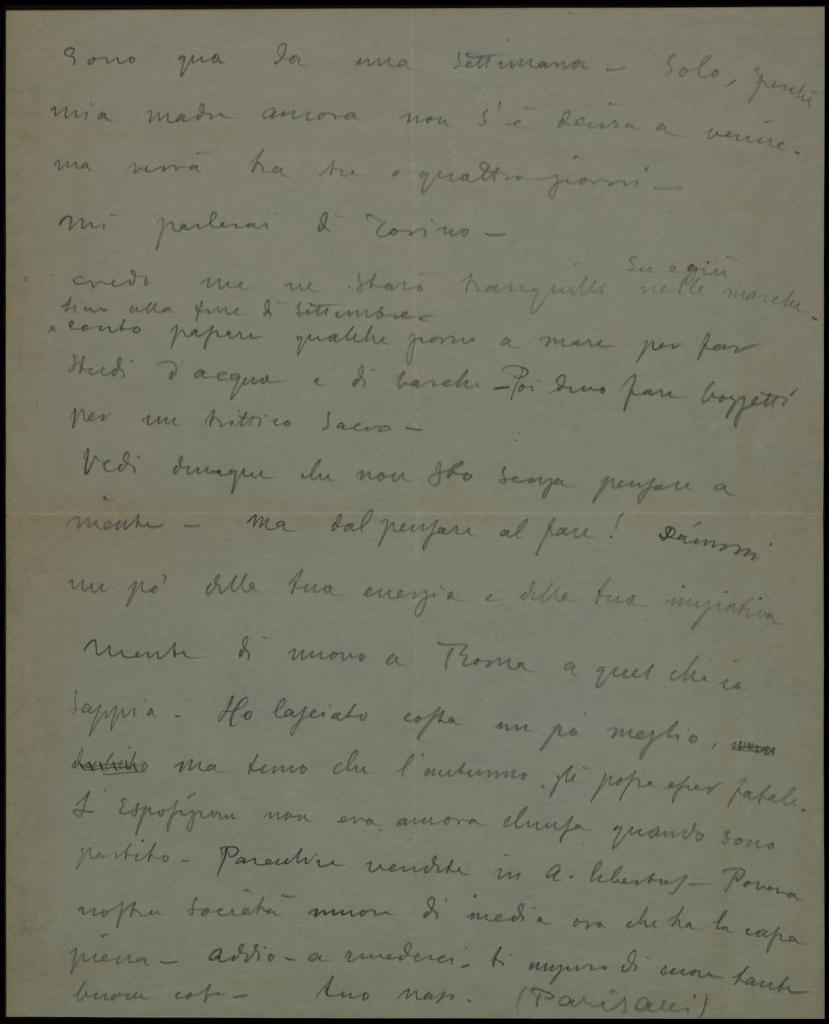 Sono qua da una settimana – Solo, perchè
mia madre ancora non s'è decisa a venire.
ma verrà tra tre o quattro giorni –
mi parlerai di Torino –
credo me ne starò tranquillo su e giù nelle marche.
sino alla fine di settembre –
e conto passare qualche giorno a mare per far
studi d'acqua e di barche – Poi devo fare bozzetti
per un trittico sacro –
Vedi dunque che non sto senza pensare a
niente – ma dal pensare al fare! Dammi
un po' della tua energia e della tua iniziativa
niente di nuovo a Roma a quel che io
sappia. Ho lasciato Costa un po' meglio,
ma temo che l'autunno gli possa esser fatale.
L'Esposizione non era ancora chiusa quando sono
partito – Parecchie vendite in A. libertas – Povera
nostra società muore di inedia ora che ha la cassa
piena – addio – a rivederci – ti auguro di cuore tante
buone cose – tuo nap. (Parisani)